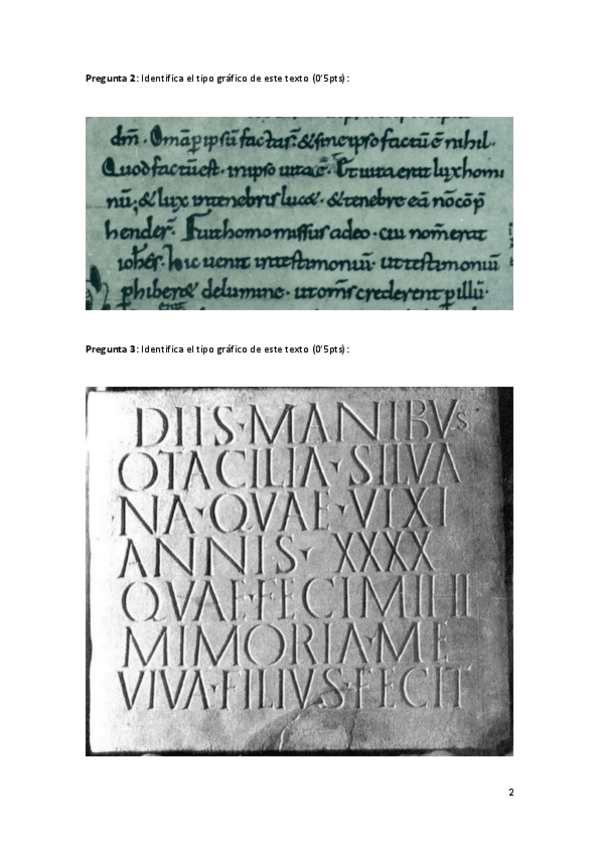 Pregunta 2: Identifica el tipo gráfico de este texto (0'5pts):
dm̄. Om̄a p ipsū facta sr̄. & sine ipso factū ē nihil.
Quod factū est. in ipso uita ē. Et uita erat lux homi
nū; & lux in tenebris luc&. & tenebre eā nō cōp̄
hender̄. Fuit homo missus a deo. cui nom̄ erat
ioh̄es. hic uenit in testimoniū. ut testimoniū
phiber& de lumine. ut om̄s crederent p illū.
Pregunta 3: Identifica el tipo gráfico de este texto (0'5pts):
DIIS·MANIBVS
OTACILIA·SILVA
NA·QVAE·VIXI
ANNIS· XXXX
QVAE·FECIMIHI
MIMORIA·ME
VIVA·FILIVS·FECIT
2